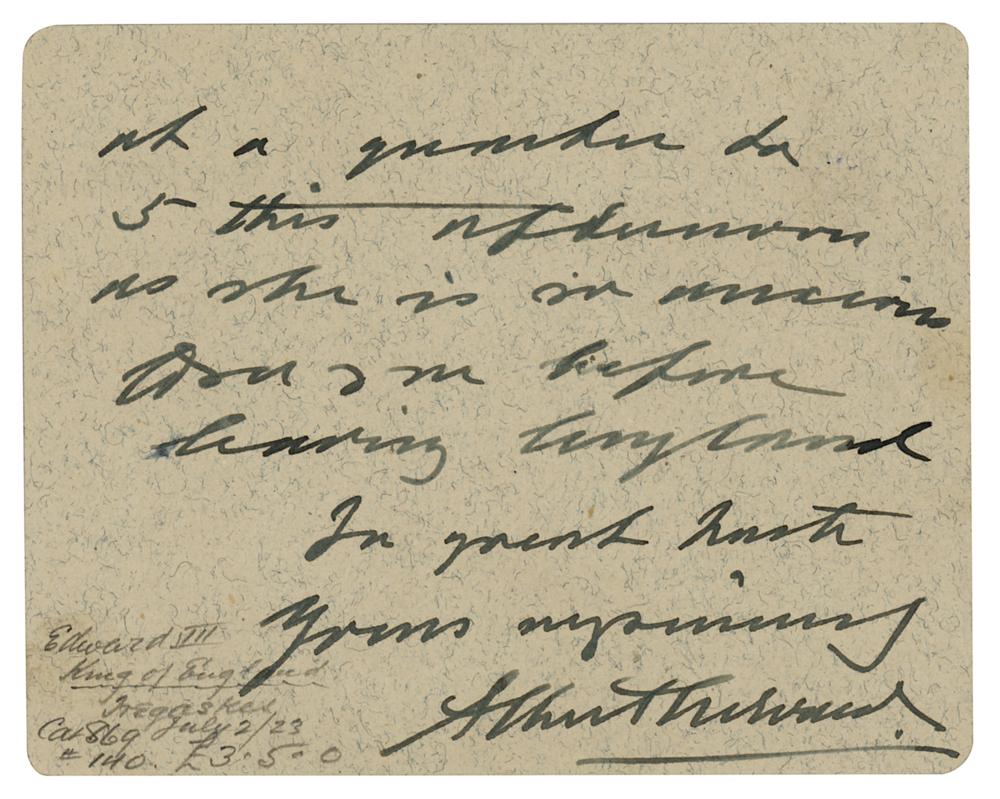 at a quarter to
5 this afternoon
as she is so anxious
to see me before
leaving England
In great haste
Yours
Albert Edward
Edward VII
King of England
Tregaskis
July 2/23
Cat 869
# 140. £3·5·0